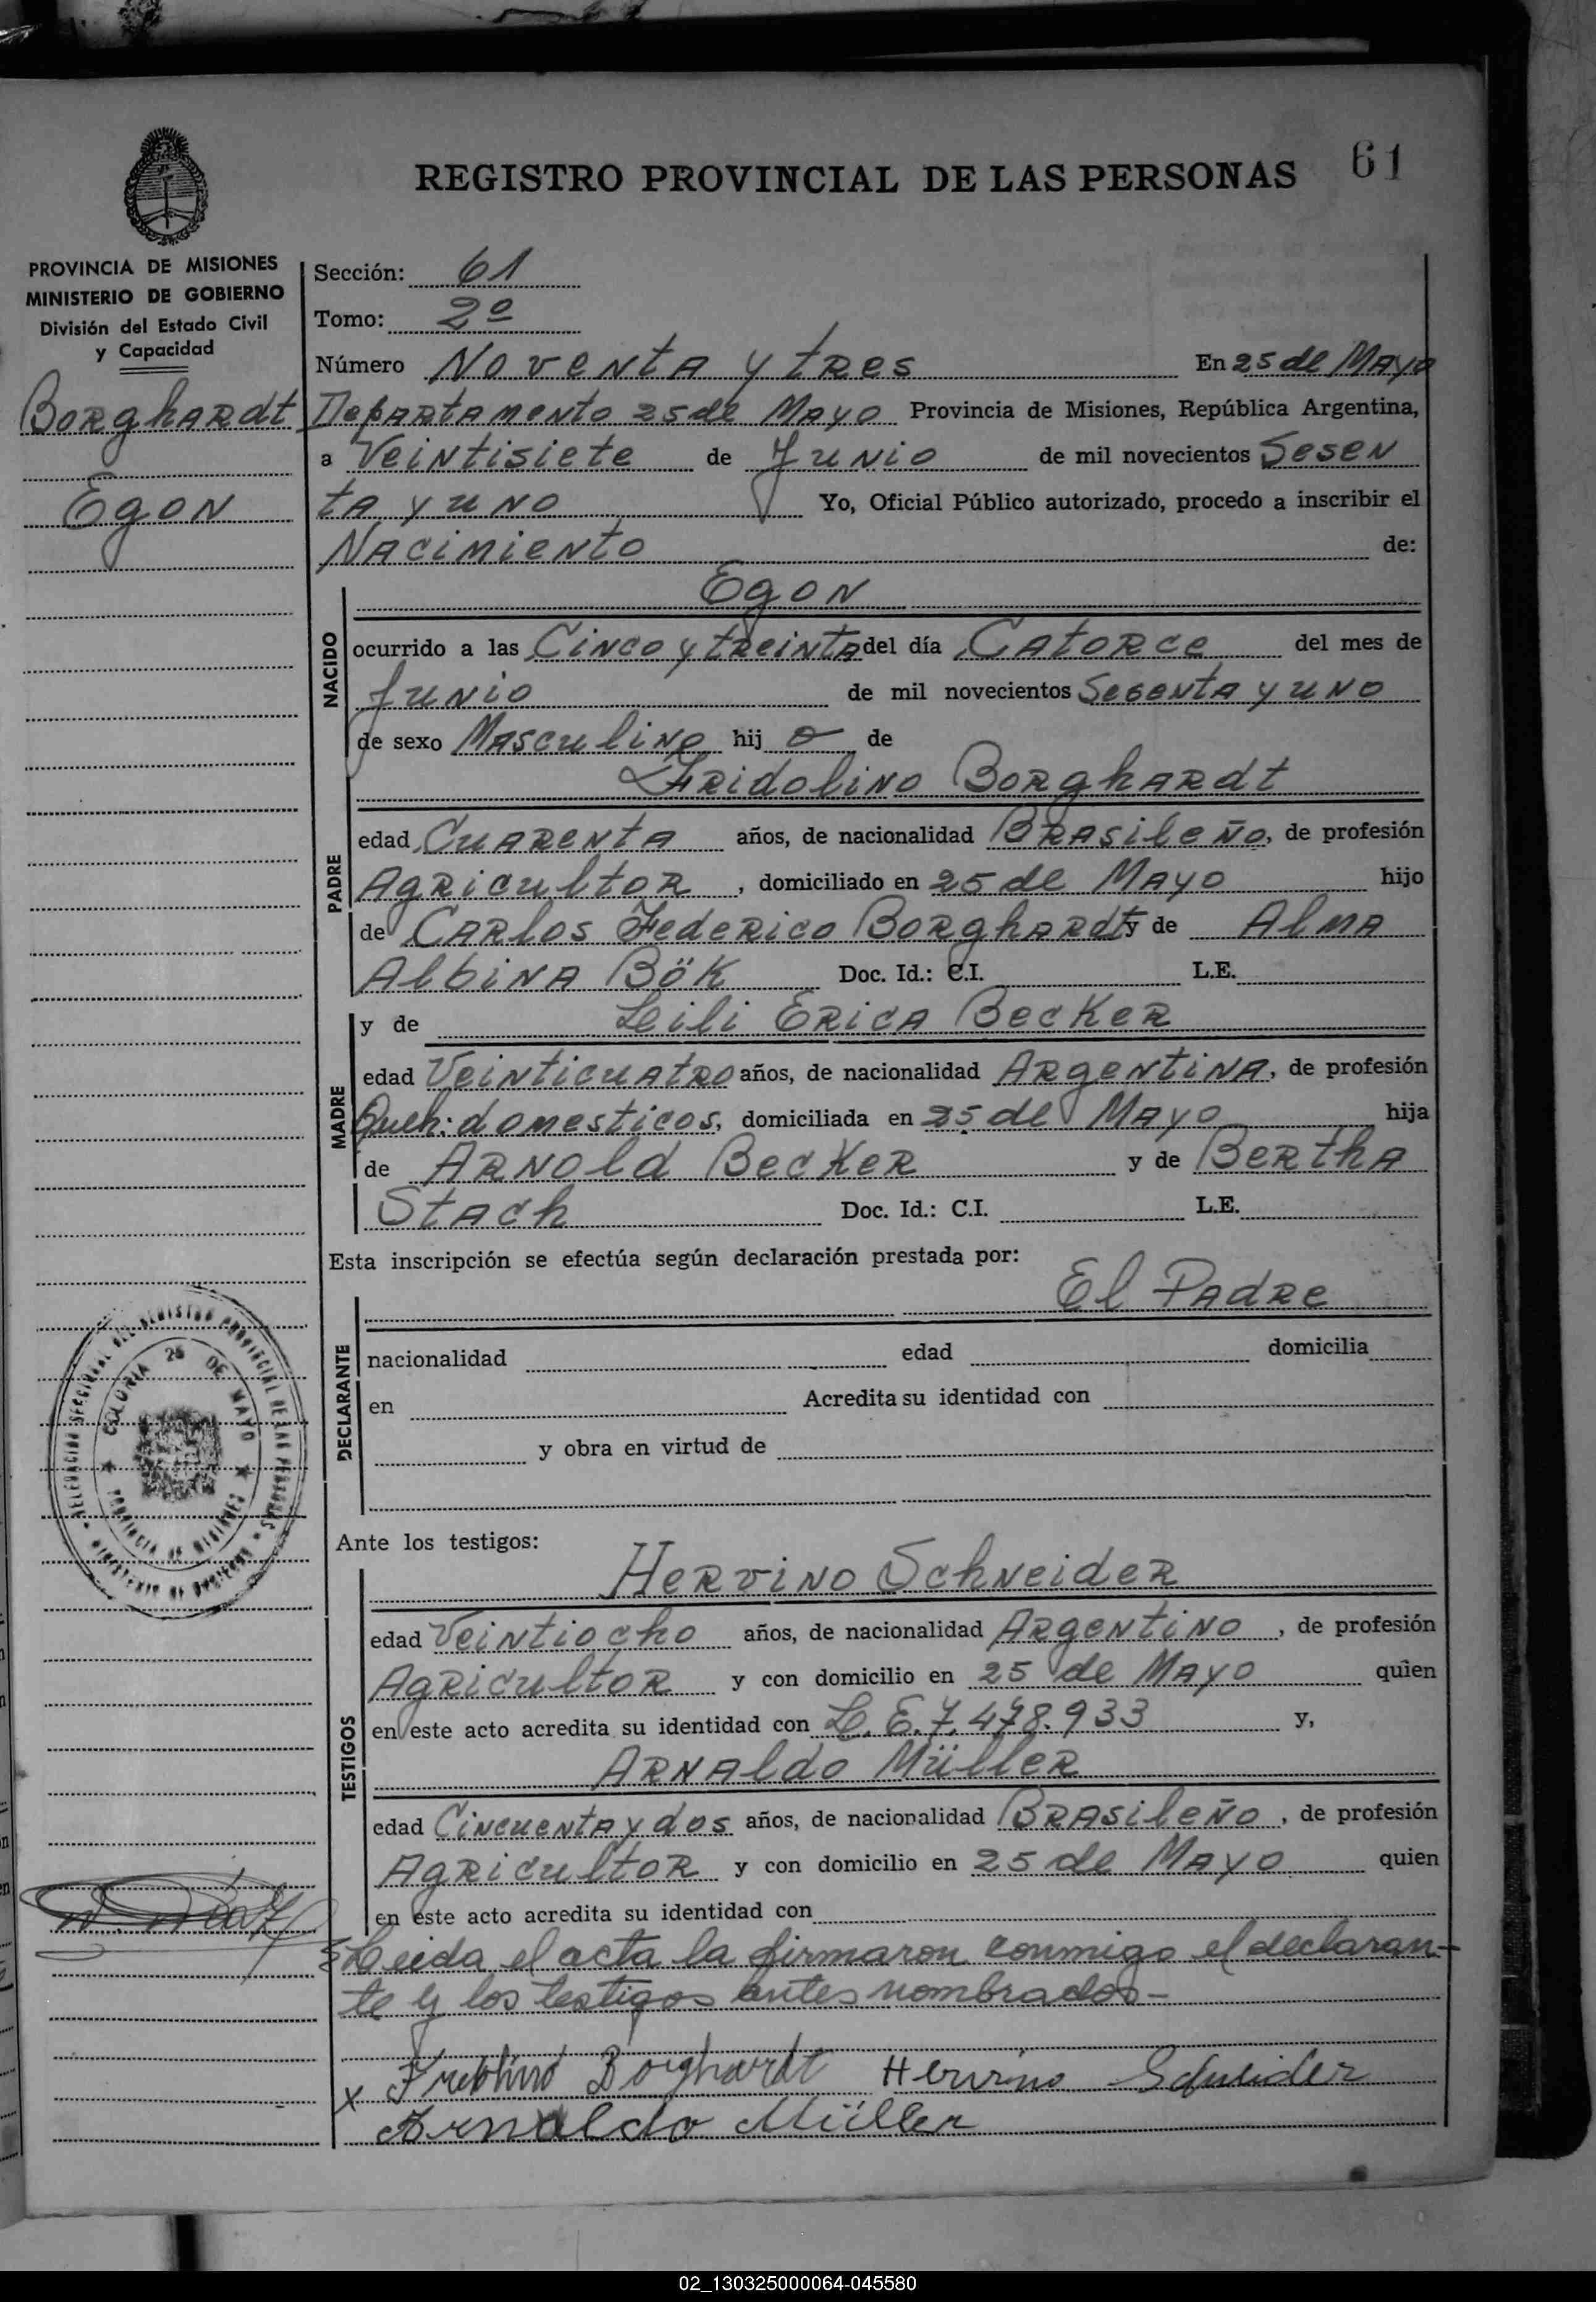 REGISTRO PROVINCIAL DE LAS PERSONAS 61
PROVINCIA DE MISIONES
MINISTERIO DE GOBIERNO
División del Estado Civil
y Capacidad
Borghardt
Egon
Sección: 61
Tomo: 2º
Número Noventa y tres En 25 de Mayo
Departamento 25 de Mayo Provincia de Misiones, República Argentina,
a Veintisiete de Junio de mil novecientos Sesen
ta y uno Yo, Oficial Público autorizado, procedo a inscribir el
Nacimiento de:
NACIDO
Egon
ocurrido a las Cinco y treinta del día Catorce del mes de
Junio de mil novecientos Sesenta y uno
de sexo Masculino hij o de
Fridolino Borghardt
PADRE
edad Cuarenta años, de nacionalidad Brasileño, de profesión
Agricultor, domiciliado en 25 de Mayo hijo
de Carlos Federico Borghardt y de Alma
Albina Bök Doc. Id.: C.I. L.E.
MADRE
y de Leili Erica Becker
edad Veinticuatro años, de nacionalidad Argentina, de profesión
Queh: domesticos, domiciliada en 25 de Mayo hija
de Arnold Becker y de Bertha
Stach Doc. Id.: C.I. L.E.
Esta inscripción se efectúa según declaración prestada por:
El Padre
DECLARANTE
nacionalidad edad domicilia
en Acredita su identidad con
y obra en virtud de
DELEGACION SECCIONAL DEL REGISTRO PROVINCIAL DE LAS PERSONAS
MINISTERIO DE GOBIERNO
COLONIA 25 DE MAYO
PROVINCIA DE MISIONES
Ante los testigos:
TESTIGOS
Hervino Schneider
edad Veintiocho años, de nacionalidad Argentino, de profesión
Agricultor y con domicilio en 25 de Mayo quien
en este acto acredita su identidad con L.E. 7.478.933 y,
Arnaldo Müller
edad Cincuenta y dos años, de nacionalidad Brasileño, de profesión
Agricultor y con domicilio en 25 de Mayo quien
en este acto acredita su identidad con
Leida el acta la firmaron conmigo el declaran-
te y los testigos antes nombrados-
x Fridolino Borghardt Hervino Schneider
Arnaldo Müller
02_130325000064-045580